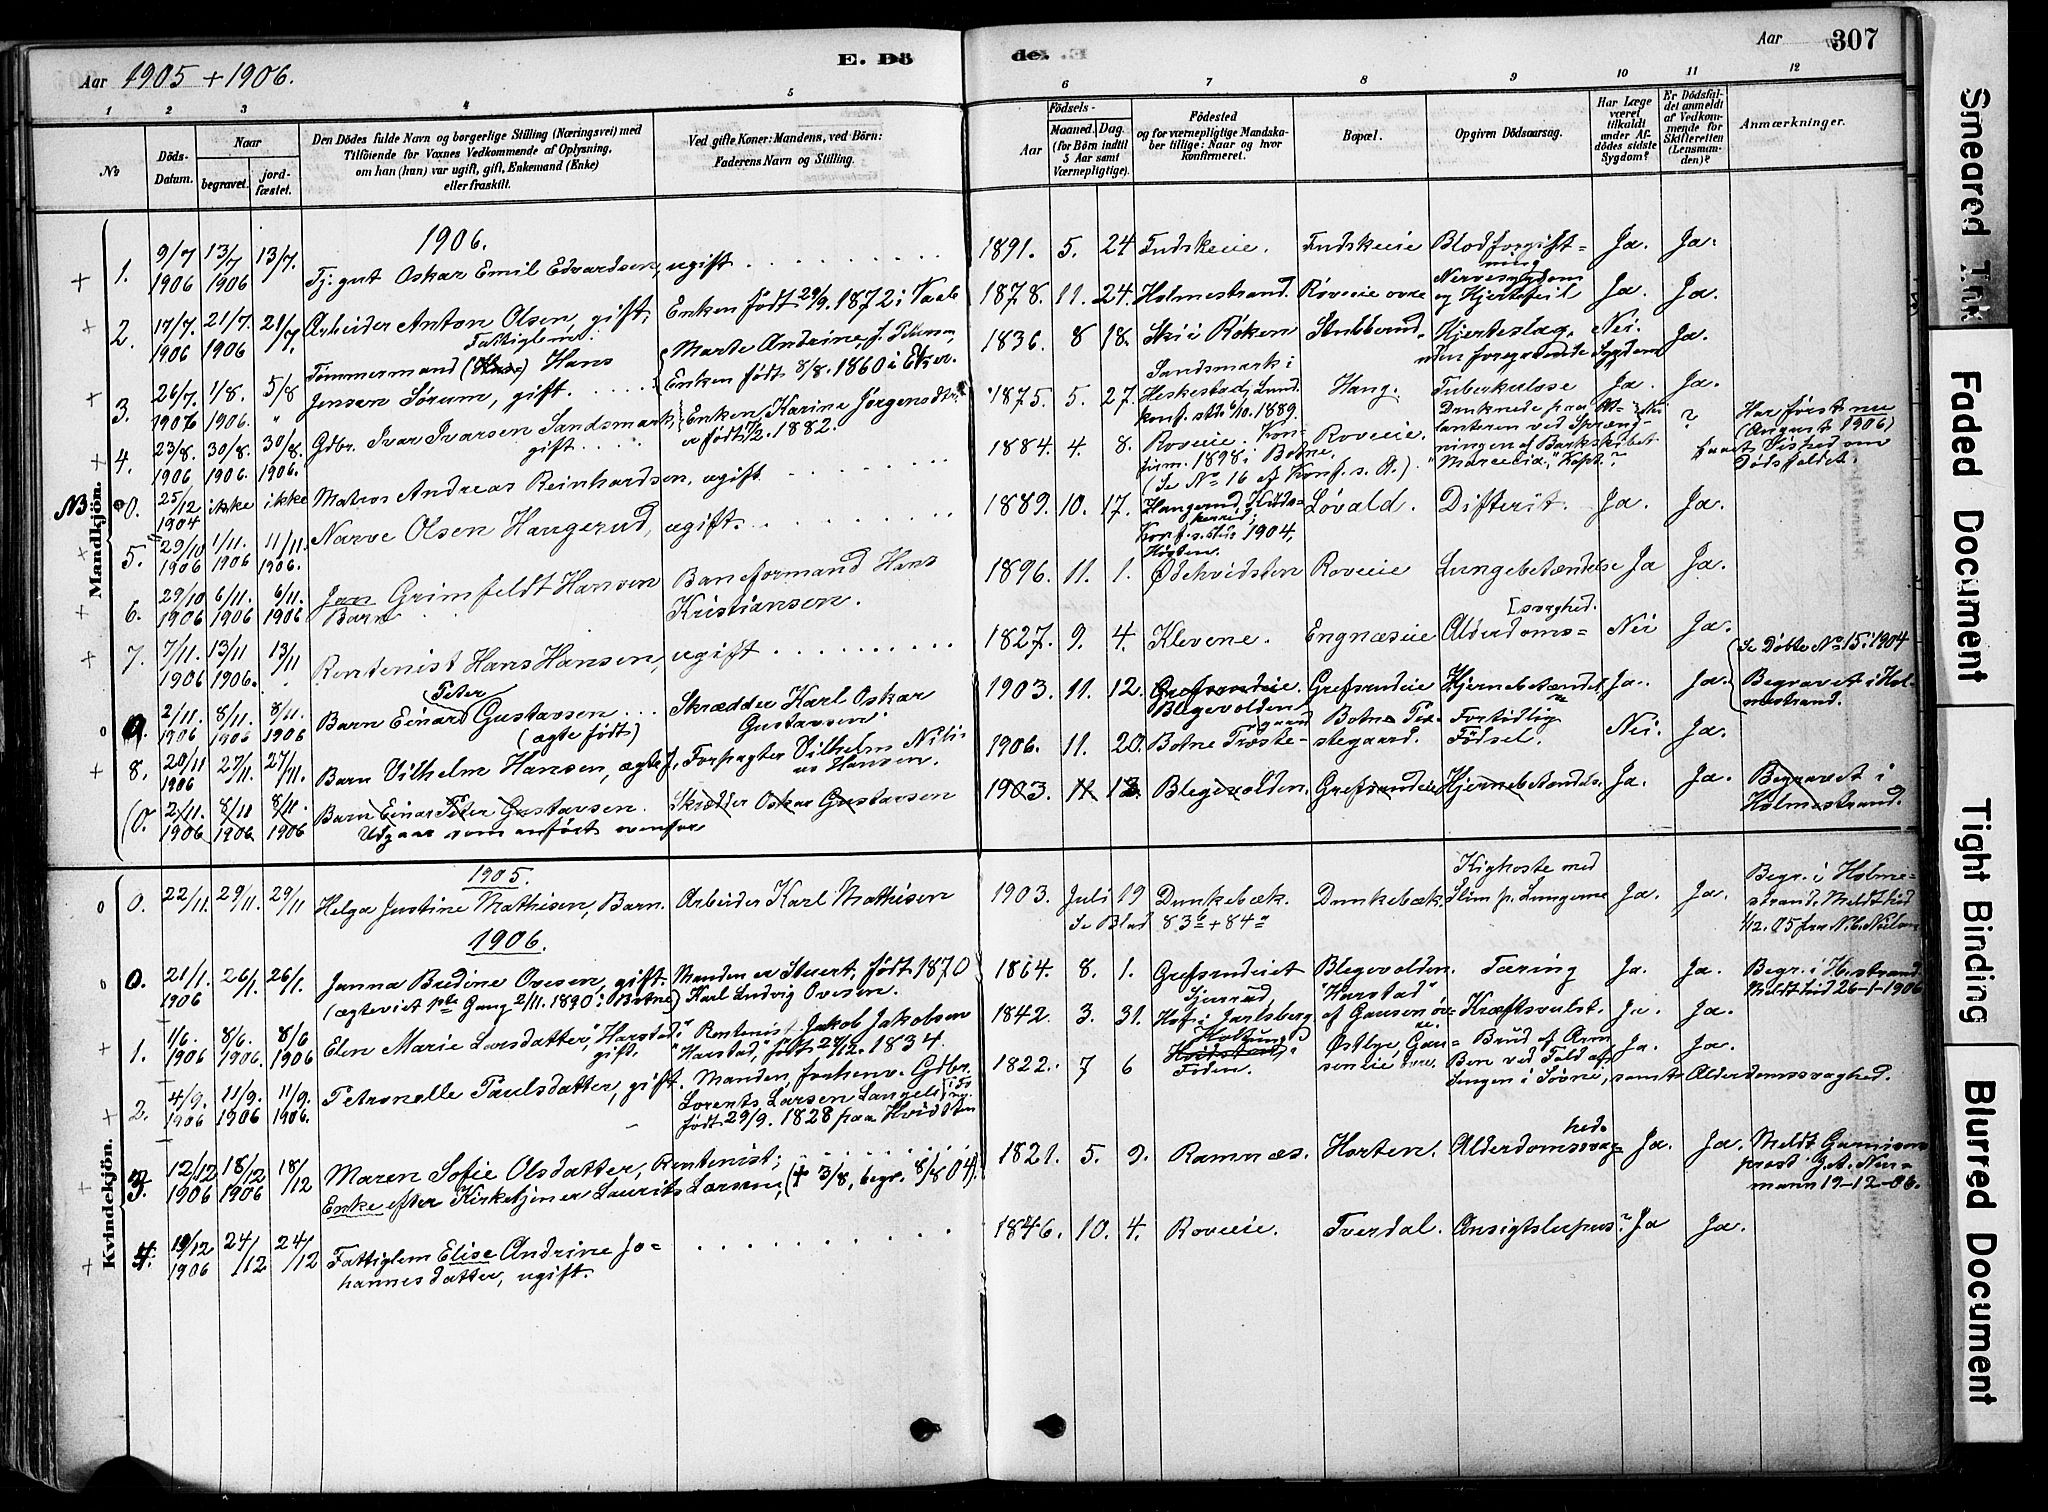 Aar 1905 + 1906.
E. Döde.
Aar 307
1 2 3 4 5 6 7 8 9 10 11 12
No
Döds-Datum.
Naar
begravet.
jordfæstet.
Den Dödes fulde Navn og borgerlige Stilling (Næringsvei) med
Tilföiende for Voxnes Vedkommende af Oplysning,
om han (hun) var ugift, gift, Enkemand (Enke)
eller fraskilt.
Ved gifte Koner: Mandens, ved Börn:
Faderens Navn og Stilling.
Födsels-
Aar
Maaned. Dag.
(for Börn indtil
5 Aar samt
Værnepligtige).
Födested
og for værnepligtige Mandska-
ber tillige: Naar og hvor
konfirmeret.
Bopæl.
Opgiven Dödsaarsag.
Har Læge
været
tilkaldt
under Af-
dödes sidste
Sygdom?
Er Dödsfal-
det anmeldt
af Vedkom-
mende for
Skifteretten
(Lensman-
den)?
Anmærkninger.
Mandkjön.
1906.
+ 1. 9/7 1906 13/7 1906 13/7. Tj. gut Oskar Emil Edvardsen, ugift 1891. 5. 24 Fudskeie. Fudskeie Blodforgift-ning Ja. Ja.
+ 2. 17/7. 1906 21/7. 1906 21/7. Arbeider Anton Olsen, gift, Fattiglem. Enken født 29/9. 1872 i Vaale 1878. 11. 24. Holmestrand. Roveie øvre Nervesygdom og Hjertefeil Ja. Ja.
+ 3. 26/7. 1906 1/8. 1906. 5/8 " Tømmermand Hans Jensen Sørum, gift. Marte Andrine, f. Enken født 8/8. 1860 i Eker. 1836. 8 18. Ski i Røken Stubberud. Hjerteslag, uden foregaaende Sygdom Nei. Ja.
+ 4. 23/8. 1906 30/8. 1906. 30/8. 1906. Gdbr. Ivar Ivarsen Sandsmark, gift. Enken, Karine Jørgensdtr. er født 1882. 1875. 5. 27. Sandsmark i Heskestad, Lund. konf. 1889. Haug. Tuberkulose Ja. Ja.
NB 0. 25/12 1904 ikke ikke Matros Andreas Reinhardsen, ugift 1884. 4. 8. Roveie. Konfirm. 1898 i Botne. (Se No 16 af Konf. s. A.) Roveie. Druknede paa Atlanteren ved Sprængningen af Barkskibet "Marcelia," Kapt.? ? Har først nu (August 1906) faaet Vished om Dødsfaldet.
5. 29/10 1906 1/11. 1906 11/11. 1906. Narve Olsen Haugerud, ugift. 1889. 10. 17. Haugerud, Konf. 1904, Høsten. Løvald. Difterit. Ja. Ja.
+ 6. 29/10 1906 6/11. 1906 6/11. 1906 Jan Grimfeldt Hansen Barn Baneformand Hans Kristiansen. 1896. 11. 1. Ødehvidsten Roveie Lungebetændelse Ja Ja.
+ 7. 7/11. 1906 13/11 1906. 13/11 Rentenist Hans Hansen, ugift 1827. 9. 4. Klevene. Engnæseie Alderdoms-svaghed. Nei Ja.
0 2/11. 1906 8/11. 1906 8/11. 1906 Barn Einar (Peter) Gustavsen (ægte født) Skrædder Karl Oskar Gustavsen 1903. 11. 12. Grefsrudeie. Blegevolden Grefsrudeie Hjernebetændelse Ja. Ja. (Se Døbte No 15. 1904 Begravet i Holmestrand.
+ 8. 20/11 1906 27/11. 27/11. Barn Vilhelm Hansen, ægte f. Forpagter Vilhelm Nilius Hansen. 1906. 11. 20. Botne Præstegaard Botne Præstegaard. Fortidlig Fødsel. Nei. Ja.
(0. 2/11. 1906 8/11 1906 8/11. 1906 Barn Einar Peter Gustavsen. Skrædder Oskar Gustavsen 1903. 11 12. Blegevolden. Grefsrudeie Hjernebetændels. Ja. Ja. Begravet i Holmestrand.
Udgaar som anført ovenfor
Kvindekjön.
1905.
0 0. 22/11. 29/11. 29/11 Helga Justine Mathisen, Barn. Arbeider Karl Mathisen 1903. Juli 19 Dunkebæk. Dunkebæk. Kighoste med Slim p. Lungerne Ja. Ja. Begr. i Holmestrand. Meldt hid 1/12. 05 fra
Se Blad 83b + 84a
1906.
0 0. 21/1. 1906 26/1. 26/1. Janna Bredine Ovesen, gift. (ægteviet 1ste Gang 2/11. 1890 i Botne) Manden er Stuert, født 1870 Karl Ludvig Ovesen. 1864. 8. 1. Grefsrudeiet Blegevolden. Tæring Ja. Ja. Begr. i H.strand. Meldt hid 26-1-1906
+ 1. 1/6. 1906 8/6. 1906. 8/6 1906 Elen Marie Larsdatter, "Harstad" gift. Rentenist Jakob Jakobsen "Harstad", født 24/12. 1834. 1842. 3. 31. Hof i Jarlsberg "Harstad" af Gausen øvre. Kræftsvulst. Ja. Ja.
+ 2. 4/9. 1906 11/9. 1906 11/9. 1906. Petronelle Paulsdatter, gift. Manden, forhenv. Gdbr. Lorents Larsen født 29/9. 1828 paa Hvidsten 1822. 7 6 Østbye, Gausen eie øvre. Brud af Arm Ben ved Fald af Sengen i Søvne, samt Alderdomssvaghed. Ja. Ja.
3. 12/12 1906 18/12 1906 18/12 Maren Sofie Olsdatter, Rentenist; Enke efter Kirketjener Laurits Larsen, († 3/8, begr. 8/8 04). 1821. 5. 9. Ramnæs. Horten. Alderdomssvaghed. Ja. Ja. Meldt Garnisonsprest 19-12-06.
+ 4. 19/12 1906 24/12 24/12 Fattiglem Elise Andrine Johannesdatter, ugift. 1846. 10. 4. Roveie. Tverdal. Ansigtslupus? Ja Ja.
Smeared Ink
Faded Document
Tight Binding
Blurred Document